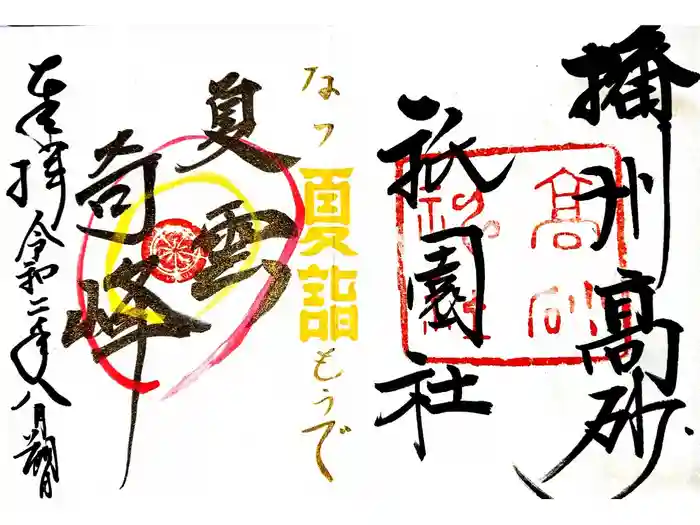 播州高砂
祇園社
高砂
なつ
夏詣
もうで
夏雲
奇峰
奉拝 令和二年八月朔日